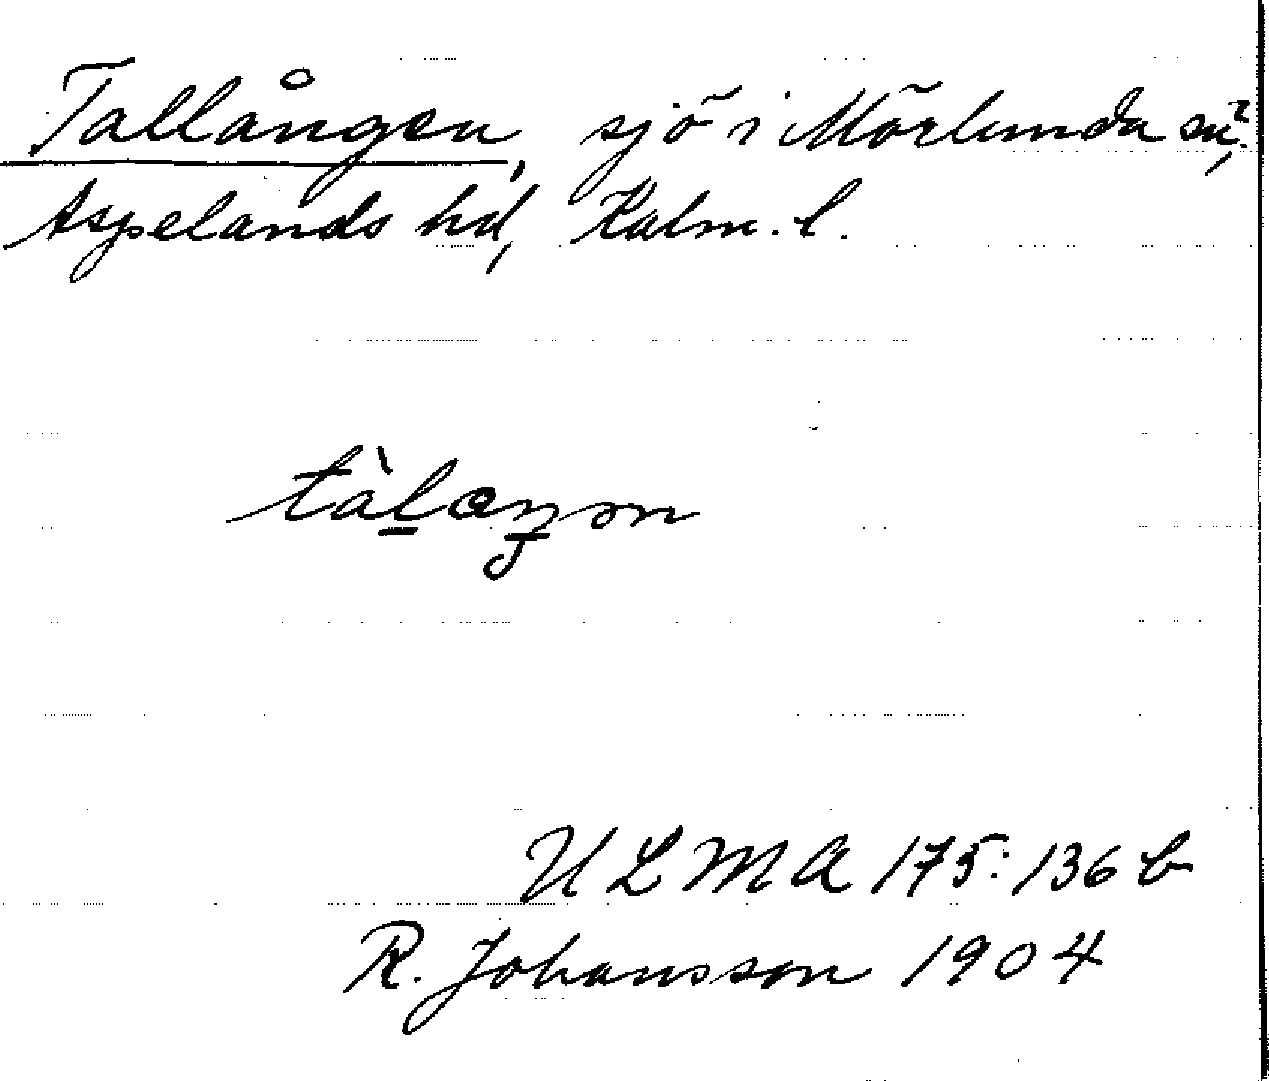 Tallången, sjö i Mörlunda sn,
Aspelands hd, Kalm. l.
tàlaŋən
ULMA 175:136 b
R. Johansson 1904